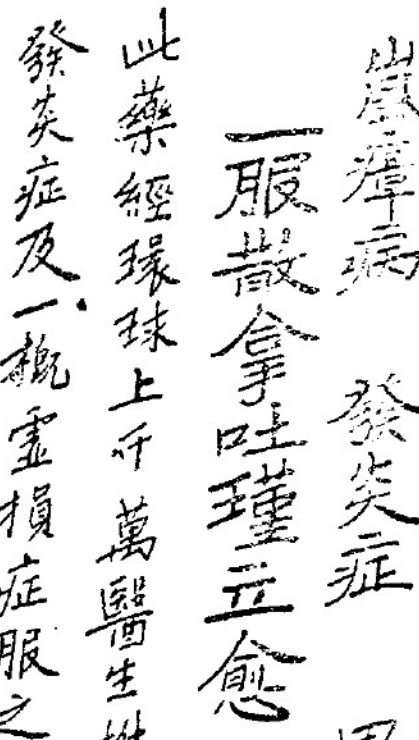 嵐瘴病 發炎症
一服散拿吐瑾立愈
此藥經環球上千萬醫生
發炎症及一概虛損症服之